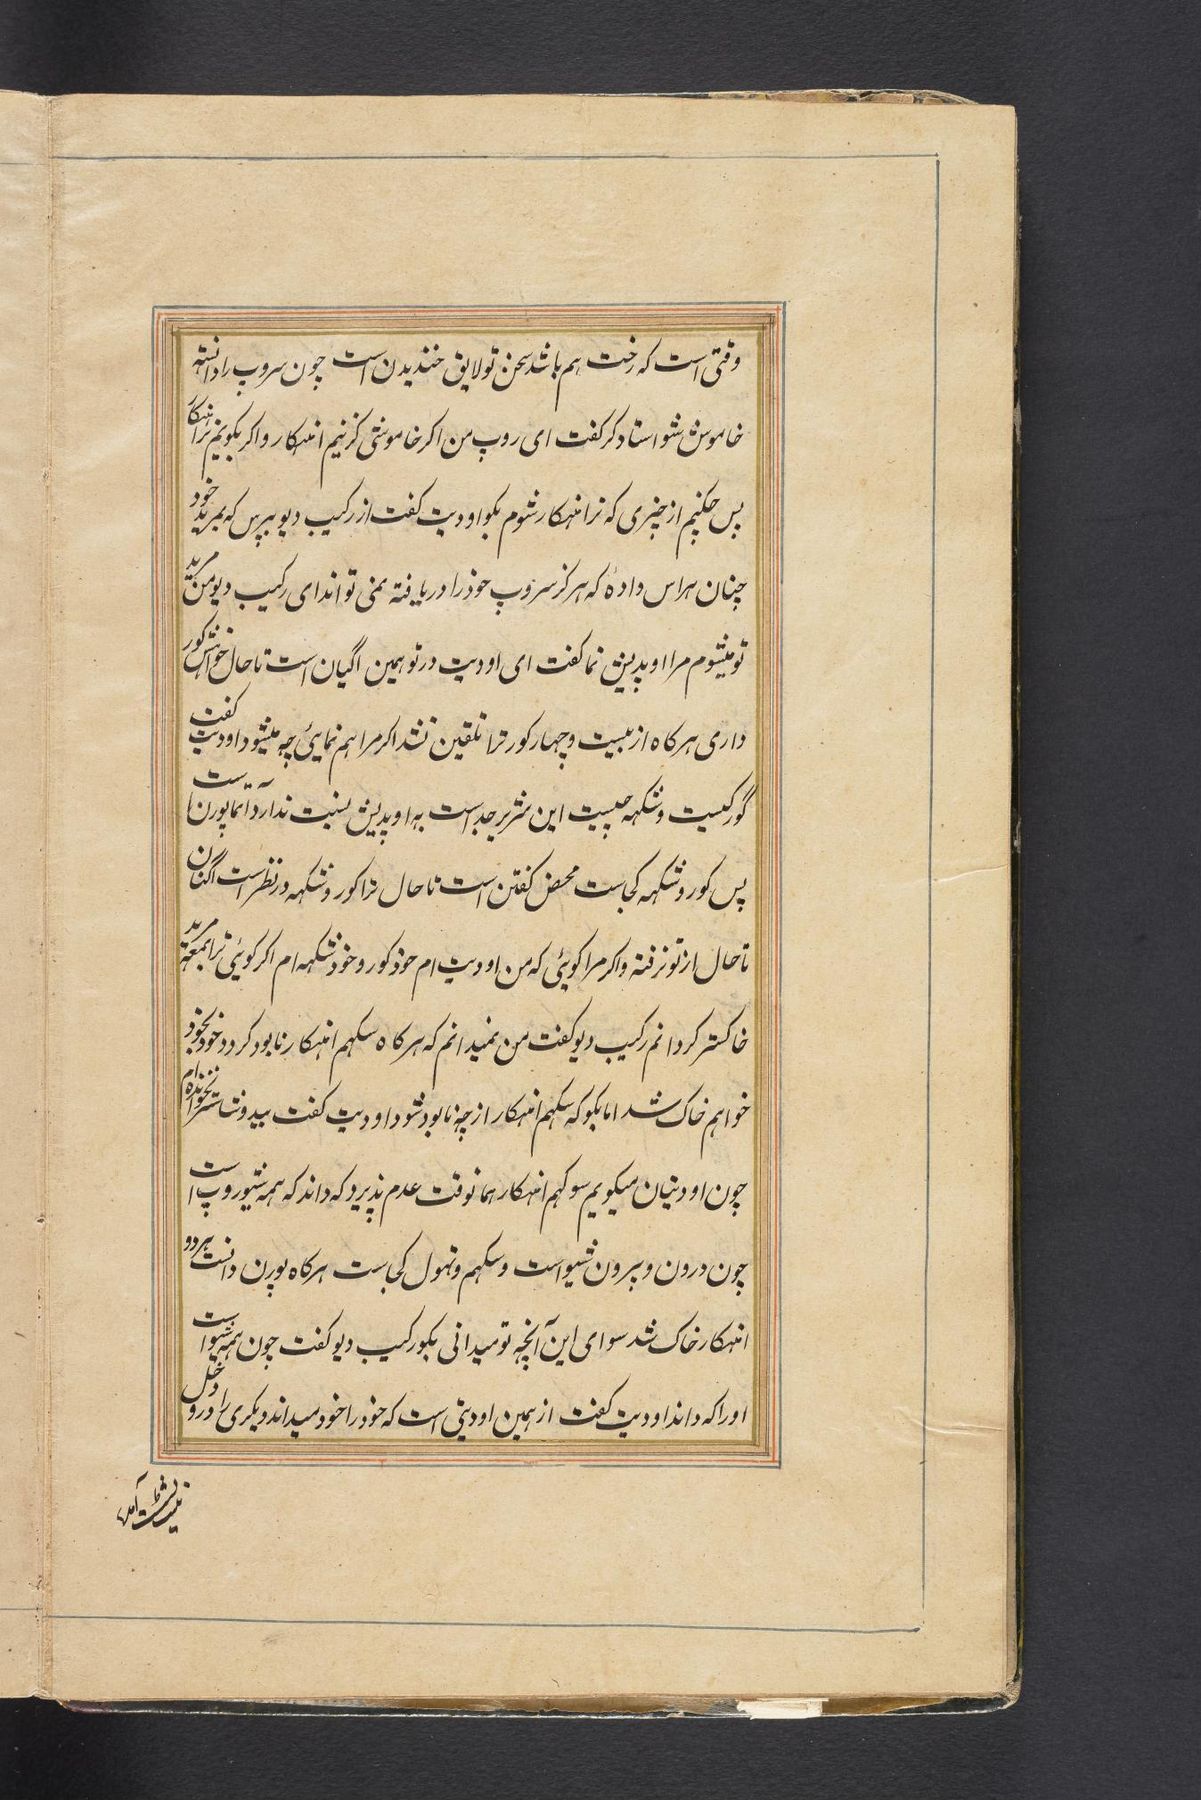 وقتی است که رخت هم باشد سخن تو لایق خندیدن است چون سروپ را دانسته
خاموش شو استاد کر کفت ای روپ من اکر خاموشی کزنیم انهکار و اکر بکویم ترا انهکار
پس چکنیم از چیزی که نرانهکار شوم بکو اودیت کفت از رکیب دیو بپرس که بمرید خود
چنان هراس دادهٔ که هرکز سروپ خود را دریافته نمی تواند ای رکیب دیو من مرید
تو میشوم مرا اوپدیش نما کفت ای اودیت در تو همین اکیان است تا حال خواهش کور
داری هرکاه از بیست و چهار کور ترا تلقین نشد اکر مرا هم نمایئ چه میشود اودیت کفت
کور کیست و شکهه چیست این شریر جد است به اوپدیش نسبت ندارد آتما پورن است
پس کور و شکهه کجاست محض کفتن است تا حال ترا کور و شکهه در نظر است اکنان
تا حال از تو نرفته و اکر مرا کویئ که من اودیت ام خود کور و خود شکهه ام اکر کویئ ترا بمعه مرید
خاکستر کردانم رکیب دیو کفت من نمیدانم که هرکاه سکهم انهکار نابود کردد خود بخود
خواهم خاک شد اما بکو که سکهم انهکار از چه نابود شود اودیت کفت بید و شاستر نخوانده ام
چون اودیتیان میکویم سوکهم انهکار همانوقت عدم پذیرد که داند که همه شیوروپ است
چون درون و بیرون شیو است و سکهم و تهول کجاست هرکاه پورن دانست هر دو
انهکار خاک شد سوای این آنچه تو میدانی بکو رکیب دیو کفت چون همه شیوا است
او را که داند اودیت کفت از همین اودیتی است که خود را خود میداند دیکری را درو دخل
نیست